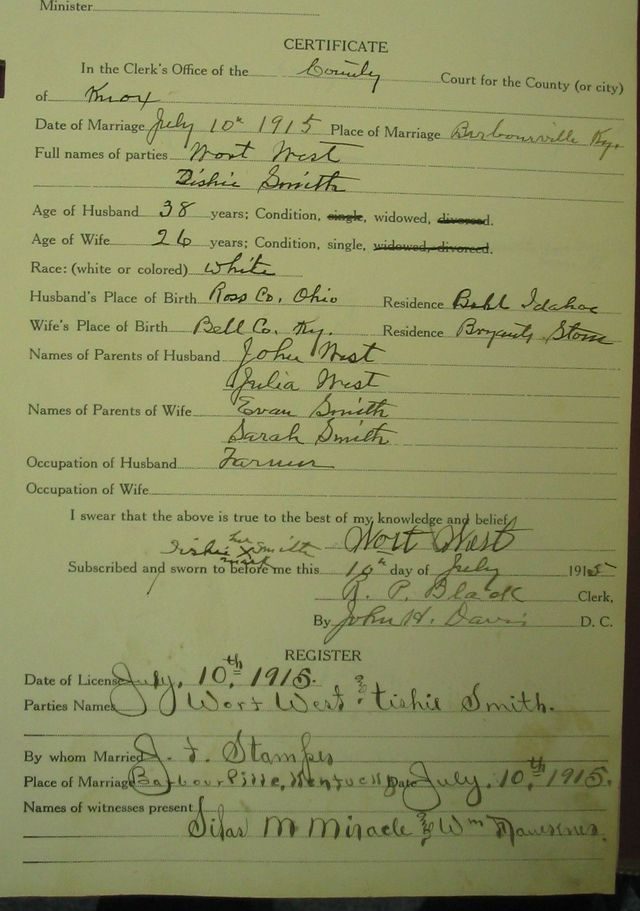 Minister
CERTIFICATE
In the Clerk's Office of the County Court for the County (or city)
of Knox
Date of Marriage July 10th 1915 Place of Marriage Barbourville Ky.
Full names of parties Wort West
Tishie Smith
Age of Husband 38 years; Condition, single, widowed, divorced.
Age of Wife 26 years; Condition, single, widowed, divorced.
Race: (white or colored) White
Husband's Place of Birth Ross Co. Ohio Residence Idaho
Wife's Place of Birth Bell Co. Ky. Residence Bryants Store
Names of Parents of Husband John West
Julia West
Names of Parents of Wife Evan Smith
Sarah Smith
Occupation of Husband Farmer
Occupation of Wife
I swear that the above is true to the best of my knowledge and belief
Tishie her x mark Smith Wort West
Subscribed and sworn to before me this 10th day of July 1915
P. Black Clerk,
By John H. Davis D. C.
REGISTER
Date of License July, 10th, 1915.
Parties Names Wort West & Tishie Smith.
By whom Married J. F. Stamper
Place of Marriage Barbourville, Kentucky Date July, 10th, 1915.
Names of witnesses present
Silas M Miracle & Wm